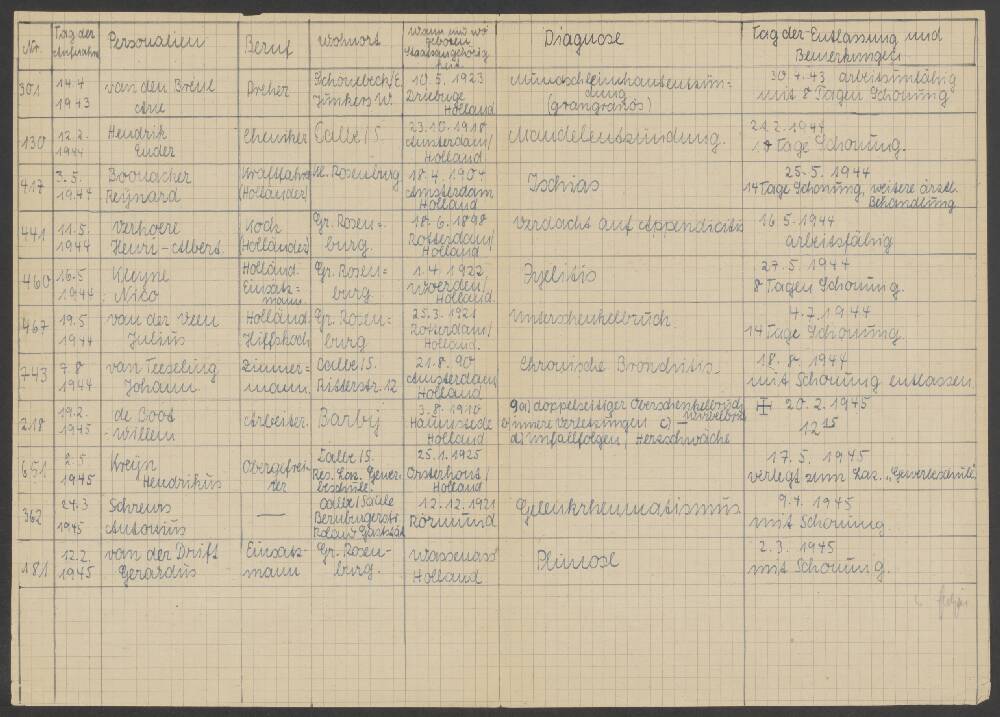 Nr.
Tag der
Aufnahme
Personalien
Beruf
Wohnort
Wann und wo
geboren
Staatsangehörig
keit
Diagnose
Tag der Entlassung und
Bemerkungen
301
14.4
1943
van den Breul
Arie
Dreher
Schönebeck/E.
Junkers W.
10.5. 1923
Driebuge
Holland
Mundschleimhautentzün=
dung
(grangränös)
30.4.43 arbeitsunfähig
mit 8 Tagen Schonung
130
12.2.
1944
Hendrik
Euder
Chemiker
Calbe/S.
23.10.1918
Amsterdam/
Holland.
Mandelentzündung.
21.2.1944
10 Tage Schonung.
417
3.5.
1944
Boonacher
Reynard
Kraftfahrer
(Holländer)
Kl. Rosenburg
18.4. 1904
Amsterdam
Holland
Ischias
25.5. 1944
14 Tage Schonung, weitere ärztl.
Behandlung
441
11.5.
1944
Verhoere
Henri-Albert.
Koch
(Holländer)
Gr. Rosen=
burg.
18.6.1898
Rotterdam/
Holland
Verdacht auf Appendicitis
16.5.1944
arbeitsfähig
460
16.5
1944
Kleyne
Nico
Holländ.
Einsatz=
mann.
Gr. Rosen=
burg
1.4.1922
Woerden/
Holland.
Pyelitis
27.5.1944
8 Tagen Schonung.
467
19.5
1944
van der Veen
Julius
Holländ.
Hilfskoch
Gr. Rosen=
burg
25.3.1921
Rotterdam/
Holland.
Unterschenkelbruch.
4.7.1944
14 Tage Schonung.
743
7.8
1944
van Teeseling
Johann.
Zimmer=
mann.
Calbe/S.
Ritterstr.12
21.8.90
Amsterdam
Holland
Chronische Bronchitis.
18.8.1944
mit Schonung entlassen
218
19.2.
1945
de Boot
Willem
Arbeiter
Barby
3.8.1910
Heemstede
Holland
doppelseitiger Oberschenkelbruch
innere Verletzungen c)
d) Unfallfolgen / Herzschwäche
20.2.1945
12 15
651
2.5
1945
Kreyn
Hendrikus
Obergefrei=
ter
Calbe/S.
Res. Laz. Gewer=
beschule.
25.1.1925
Oosterhout/
Holland
17.5. 1945
verlegt zum Laz. „Gewerbeschule"
362
24.3
1945
Schreurs
Antonius
—
Calbe/Saale
Bernburgerstr.
Roland Gaststät
12.12.1921
Römund
Gelenkrheumatismus
9.4. 1945
mit Schonung
181
12.2.
1945
van der Drift
Gerardus
Einsatz-
mann
Gr. Rosen-
burg.
Wassenaas
Holland
2.3. 1945
mit Schonung.